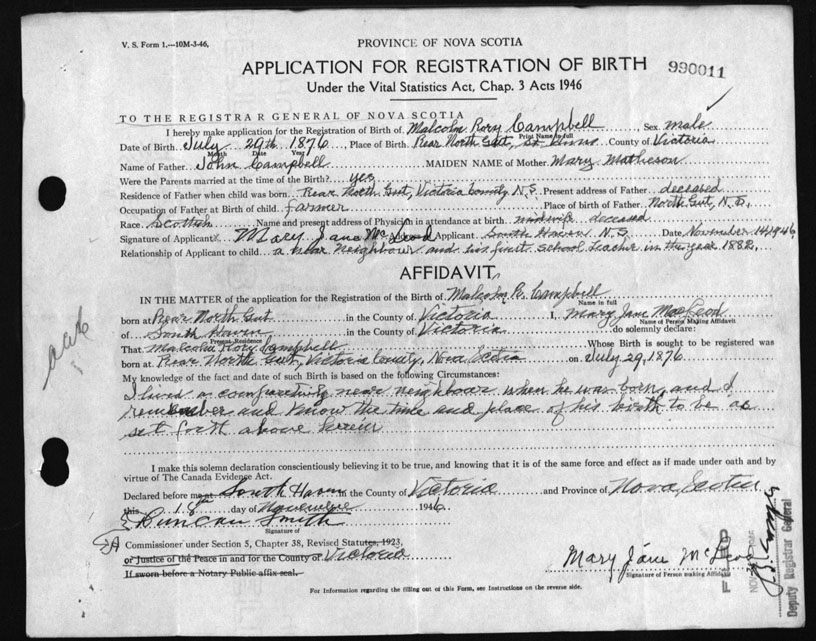 V. S. Form 1.—10M-3-46,
PROVINCE OF NOVA SCOTIA
APPLICATION FOR REGISTRATION OF BIRTH
990011
Under the Vital Statistics Act, Chap. 3 Acts 1946
TO THE REGISTRAR GENERAL OF NOVA SCOTIA
I hereby make application for the Registration of Birth of Malcolm Rory Campbell, Sex male
Print Name in full
Date of Birth July 29th 1876, Place of Birth Rear North Gut, St Anns County of Victoria
Month Date Year
Name of Father John Campbell MAIDEN NAME of Mother Mary Matheson
Were the Parents married at the time of the Birth? yes
Residence of Father when child was born Rear North Gut, Victoria County N.S. Present address of Father deceased
Occupation of Father at Birth of child farmer Place of birth of Father North Gut, N.S.
Race Scottish Name and present address of Physician in attendance at birth midwife deceased
Signature of Applicant Mary Jane McLeod Applicant South Haven N.S. Date, November 14, 1946
Relationship of Applicant to child a near neighbour and his first school teacher in the year 1882,
AFFIDAVIT,
IN THE MATTER of the application for the Registration of the Birth of Malcolm R. Campbell
Name in full
born at Rear North Gut in the County of Victoria I, Mary Jane MacLeod
Name of Person Making Affidavit
of South Haven in the County of Victoria do solemnly declare:
Present Residence
That Malcolm Rory Campbell Whose Birth is sought to be registered was
born at Rear North Gut, Victoria County, Nova Scotia on July 29, 1876
My knowledge of the fact and date of such Birth is based on the following Circumstances:
I lived a comparitively near neighbour when he was born, and I
remember and know the time and place of his birth to be as
set forth above herein
I make this solemn declaration conscientiously believing it to be true, and knowing that it is of the same force and effect as if made under oath and by
virtue of The Canada Evidence Act.
Declared before me at South Haven in the County of Victoria and Province of Nova Scotia
this 18th day of November 1946
Duncan Smith
Signature of
A Commissioner under Section 5, Chapter 38, Revised Statutes, 1923,
or Justice of the Peace in and for the County of Victoria
If sworn before a Notary Public affix seal.
Mary Jane McLeod
Signature of Person making Affidavit
For Information regarding the filling out of this Form, see Instructions on the reverse side.
FILED
Deputy Registrar General